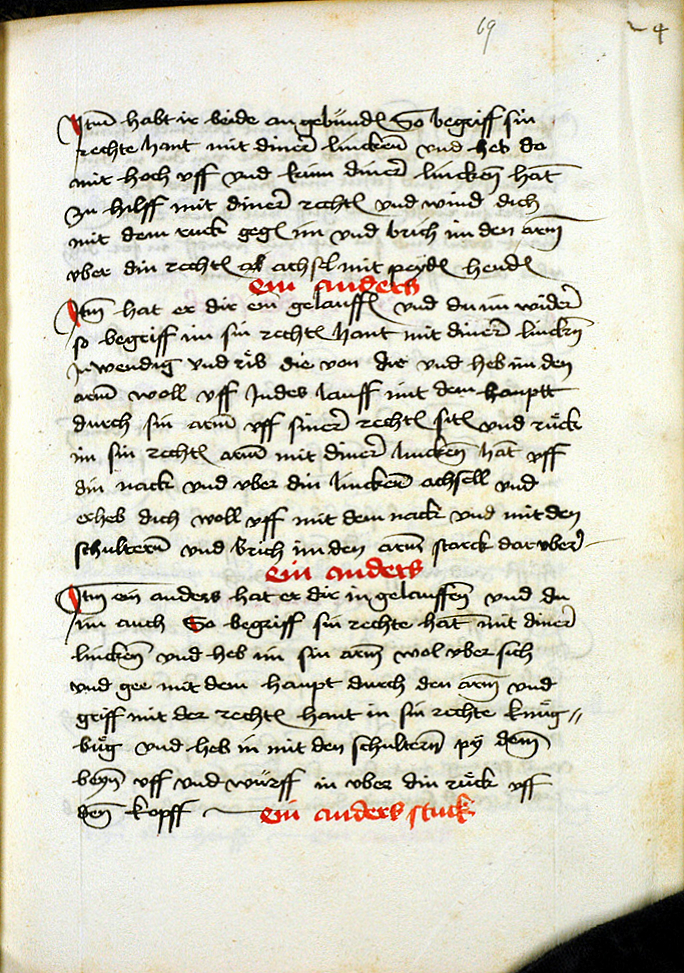 69
4
Itm̄ habt ir beide an gebūndẽ So begriff sin
rechte hant mit diner̄ linckenn̄ vnd heb do
mit hoch vff vnd kum diner̄ linckēn hāt
zu hilff mit diner̄ rechtẽ vnd wind dich
mit dem ruck gegẽ im vnd brich im den arm̄
vber din rechtẽ achsel mit peydẽ hendẽ
ein anders
Itm̄ hat er dir ein gelauffẽ vnd du im wider̄
so begriff im sin rechtẽ hant mit diner̄ linckn̄
Inwendig vnd rib die von dir vnd heb im den
arm̄ woll vff Indes lauff mit dem hauptt
durch sin arm̄ vff siner̄ rechtẽ sitẽ vnd ruͤck
im sin rechtẽ arm̄ mit diner̄ linckēn hāt vff
din nack vnd vber din linckenn̄ achsell vnd
erheb dich woll vff mit dem nack vnd mit den
schultern̄ vnd brich im den arm̄ starck dar vber̄
ein anders
Itm̄ ein anders hat er dir in gelauffēn vnd du
im auch So begriff sin rechte hāt mit diner̄
linckēn vnd heb im sin arm̄ wol vber sich
vnd gee mit dem haupt durch den arm̄ vnd
griff mit der rechtẽ hant in sin rechte knuͤg〃
buͤg vnd heb in mit den schultern̄ py dem̄
beyn̄ vff vnd wuͤrff in vber din ruͤck vff
den̄ kopff ein anders stuck